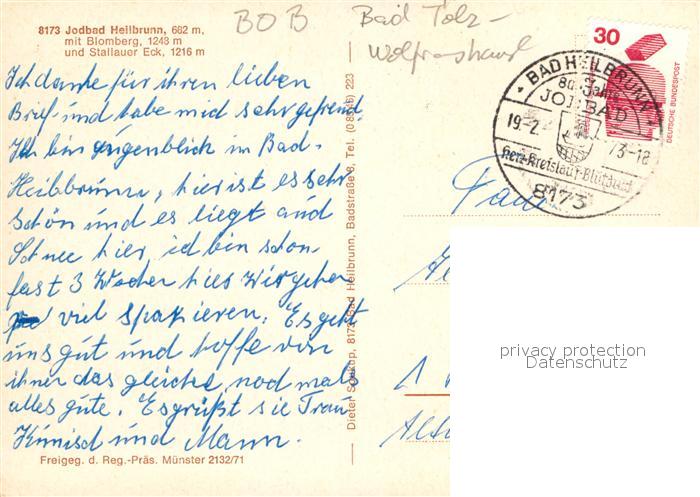 8173 Jodbad Heilbrunn, 682 m,
mit Blomberg, 1248 m
und Stallauer Eck, 1216 m
BOB Bad Tölz-
Wolfratshausen
30
DEUTSCHE BUNDESPOST
BAD HEILBRUNN
JODBAD
19.-2. 73-18
Herz-Kreislauf-Blutdruck
8173
Ich danke für ihren lieben
Brief und habe mich sehr gefreud
Ich bin augenblick in Bad-
Heilbrunn, hier ist es sehr
schön und es liegt auch
Schnee hier, ich bin schon
fast 3 Wochen hier Wir gehen
viel spazieren. Es geht
uns gut und hoffe von
ihnen das gleiche, noch mals
alles gute. Es grüßt sie Frau
und Mann.
Freigeg. d. Reg.-Präs. Münster 2132/71
8173 Bad Heilbrunn, Badstraße 8, Tel.
1
privacy protection
Datenschutz